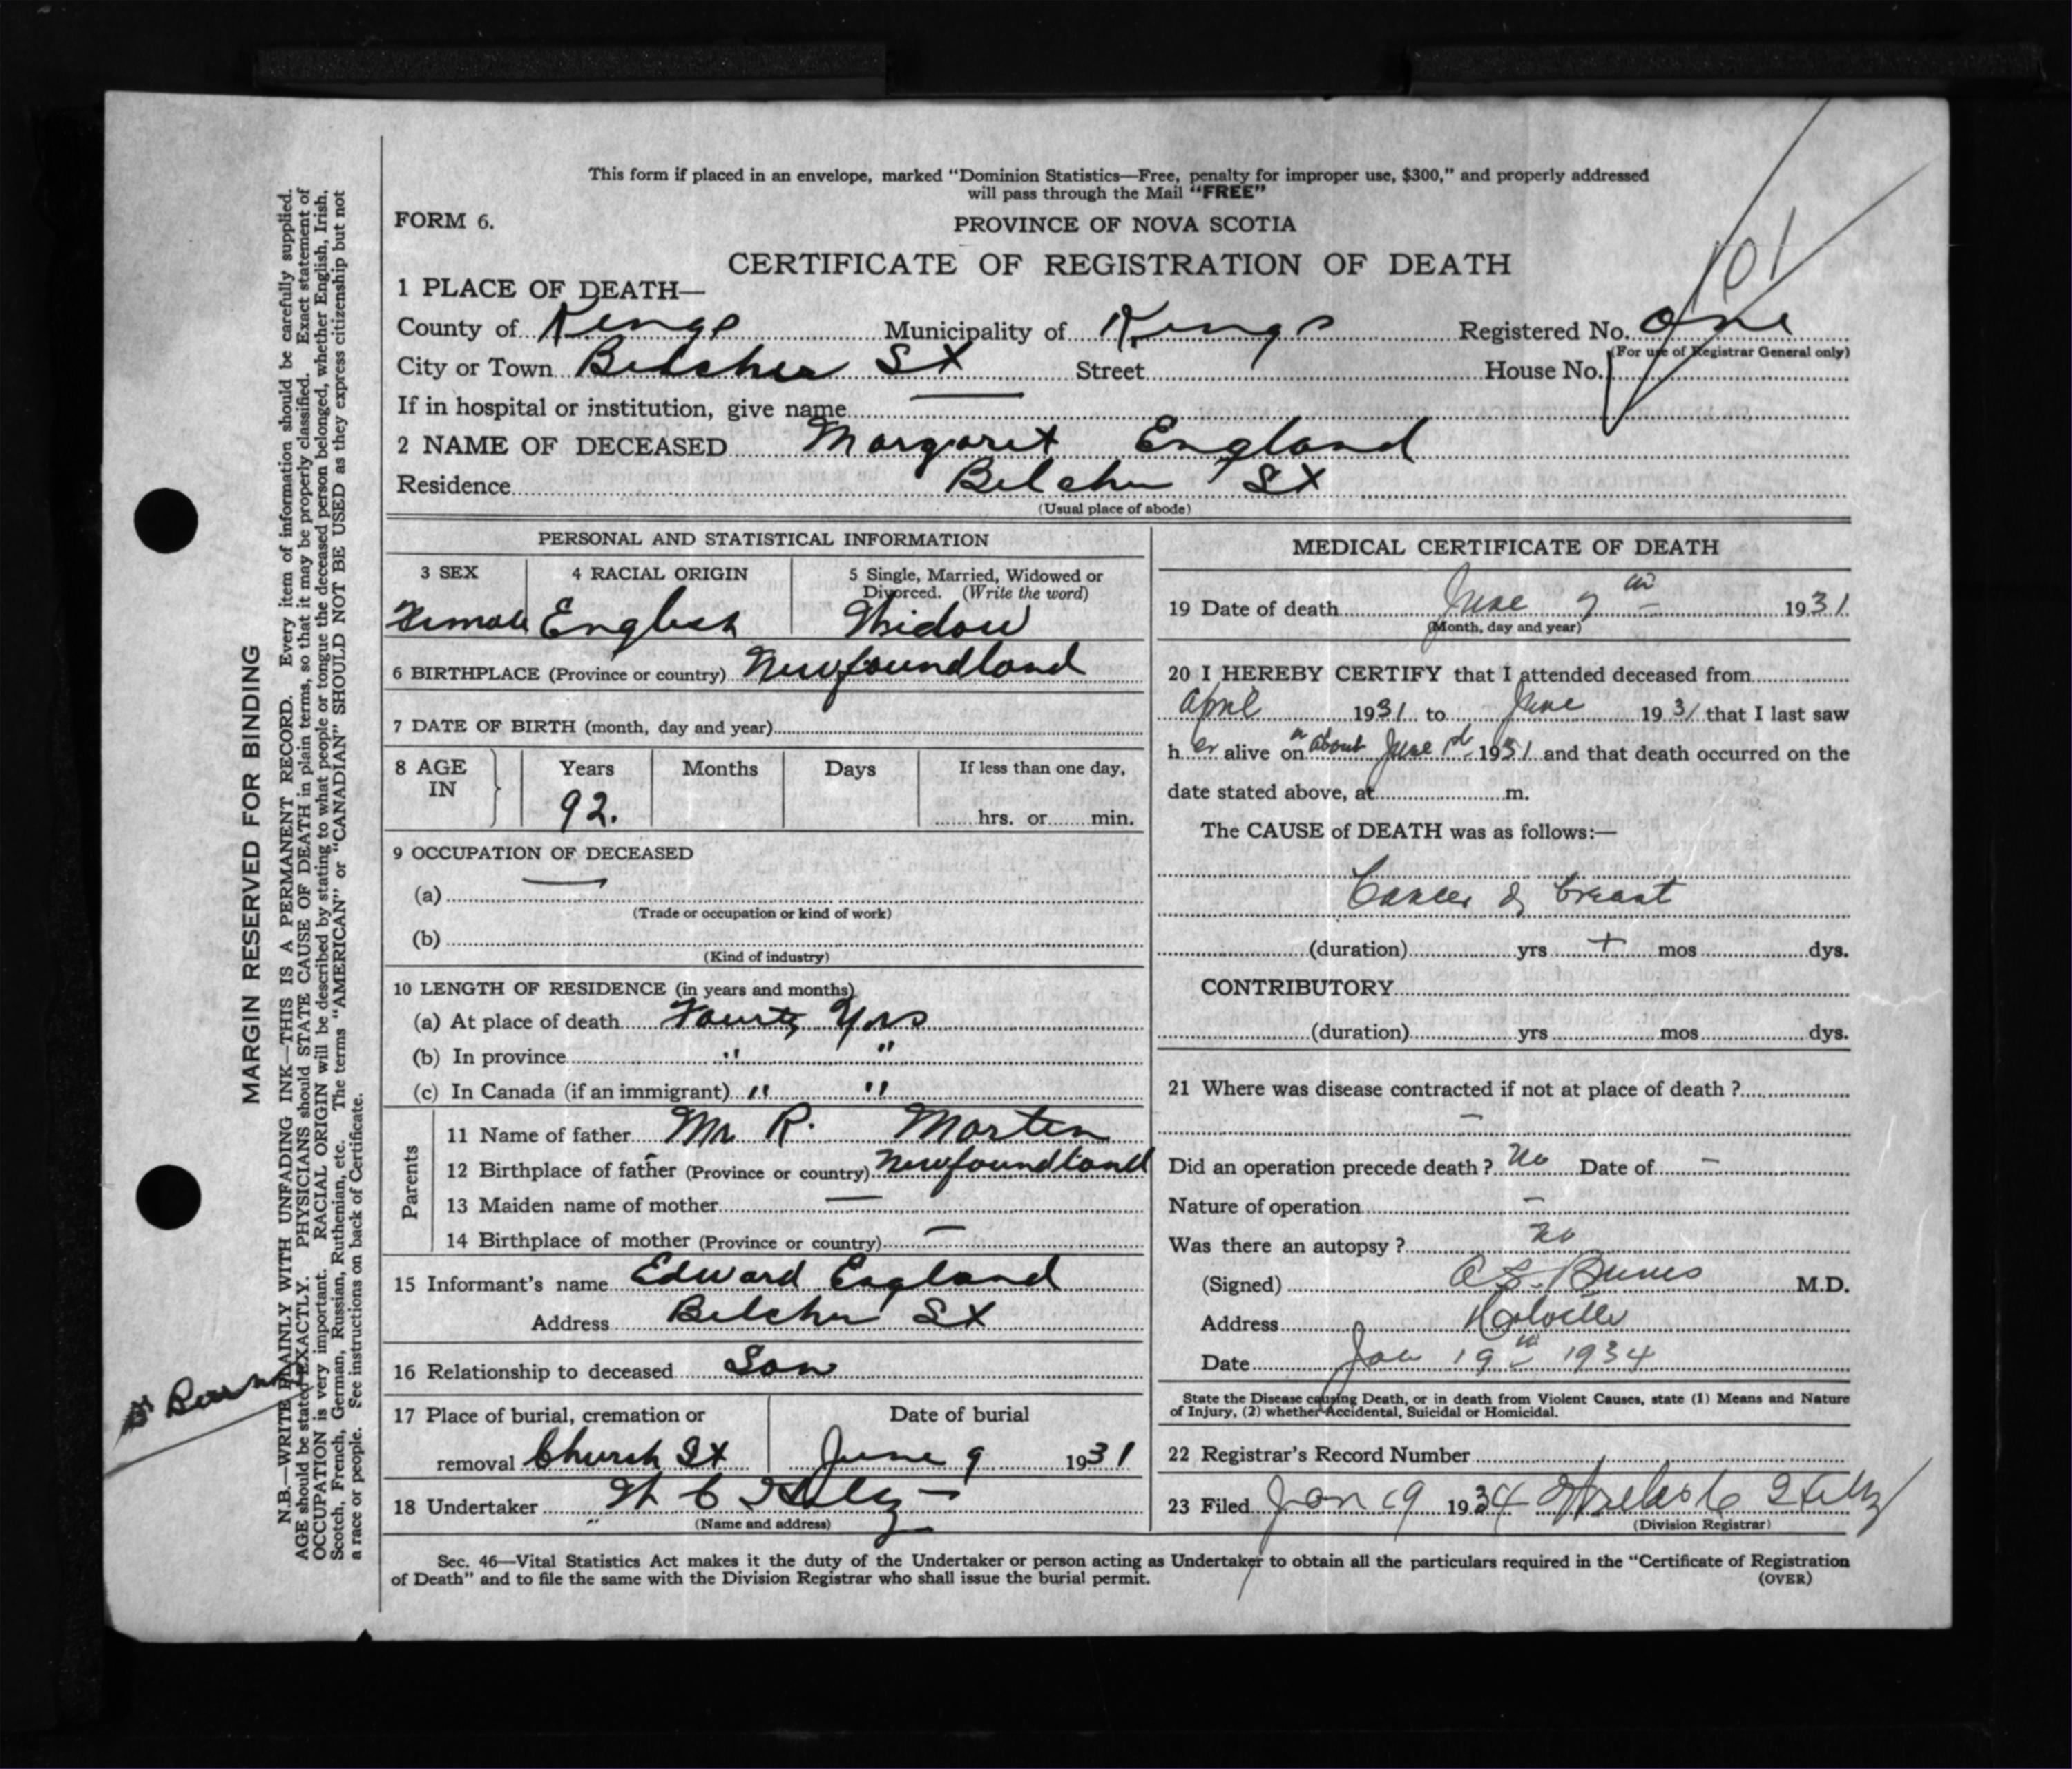 This form if placed in an envelope, marked "Dominion Statistics—Free, penalty for improper use, $300," and properly addressed
will pass through the Mail "FREE"
FORM 6.
PROVINCE OF NOVA SCOTIA
101
CERTIFICATE OF REGISTRATION OF DEATH
1 PLACE OF DEATH—
County of Kings Municipality of Kings Registered No. One
(For use of Registrar General only)
City or Town Belcher St Street House No.
If in hospital or institution, give name —
2 NAME OF DECEASED Margaret England
Residence Belcher St
(Usual place of abode)
PERSONAL AND STATISTICAL INFORMATION
3 SEX 4 RACIAL ORIGIN 5 Single, Married, Widowed or
Divorced. (Write the word)
Female English Widow
6 BIRTHPLACE (Province or country) Newfoundland
7 DATE OF BIRTH (month, day and year)
8 AGE IN Years Months Days If less than one day,
92. hrs. or min.
9 OCCUPATION OF DECEASED
(a) —
(Trade or occupation or kind of work)
(b)
(Kind of industry)
10 LENGTH OF RESIDENCE (in years and months)
(a) At place of death Fourty Yrs
(b) In province " "
(c) In Canada (if an immigrant) " "
Parents
11 Name of father Mr R. Morten
12 Birthplace of father (Province or country) Newfoundland
13 Maiden name of mother —
14 Birthplace of mother (Province or country) —
15 Informant's name Edward England
Address Belcher St
16 Relationship to deceased Son
17 Place of burial, cremation or Date of burial
removal Church St June 9 1931
18 Undertaker W C
(Name and address)
MEDICAL CERTIFICATE OF DEATH
19 Date of death June 7th 1931
(Month, day and year)
20 I HEREBY CERTIFY that I attended deceased from
April 1931 to June 1931 that I last saw
her alive on about June 1st 1931 and that death occurred on the
date stated above, at m.
The CAUSE of DEATH was as follows:—
Cancer of breast
(duration) yrs + mos dys.
CONTRIBUTORY
(duration) yrs mos dys.
21 Where was disease contracted if not at place of death ?
—
Did an operation precede death ? No Date of —
Nature of operation —
Was there an autopsy ? No
(Signed) M.D.
Address
Date Jan 19th 1934
State the Disease causing Death, or in death from Violent Causes, state (1) Means and Nature
of Injury, (2) whether Accidental, Suicidal or Homicidal.
22 Registrar's Record Number
23 Filed Jan 19 1934
(Division Registrar)
Sec. 46—Vital Statistics Act makes it the duty of the Undertaker or person acting as Undertaker to obtain all the particulars required in the "Certificate of Registration
of Death" and to file the same with the Division Registrar who shall issue the burial permit.
(OVER)
MARGIN RESERVED FOR BINDING
N.B.—WRITE PLAINLY WITH UNFADING INK—THIS IS A PERMANENT RECORD. Every item of information should be carefully supplied.
AGE should be stated EXACTLY. PHYSICIANS should STATE CAUSE OF DEATH in plain terms, so that it may be properly classified. Exact statement of
OCCUPATION is very important. RACIAL ORIGIN will be described by stating to what people or tongue the deceased person belonged, whether English, Irish,
Scotch, French, German, Russian, Ruthenian, etc. The terms "AMERICAN" or "CANADIAN" SHOULD NOT BE USED as they express citizenship but not
a race or people. See instructions on back of Certificate.